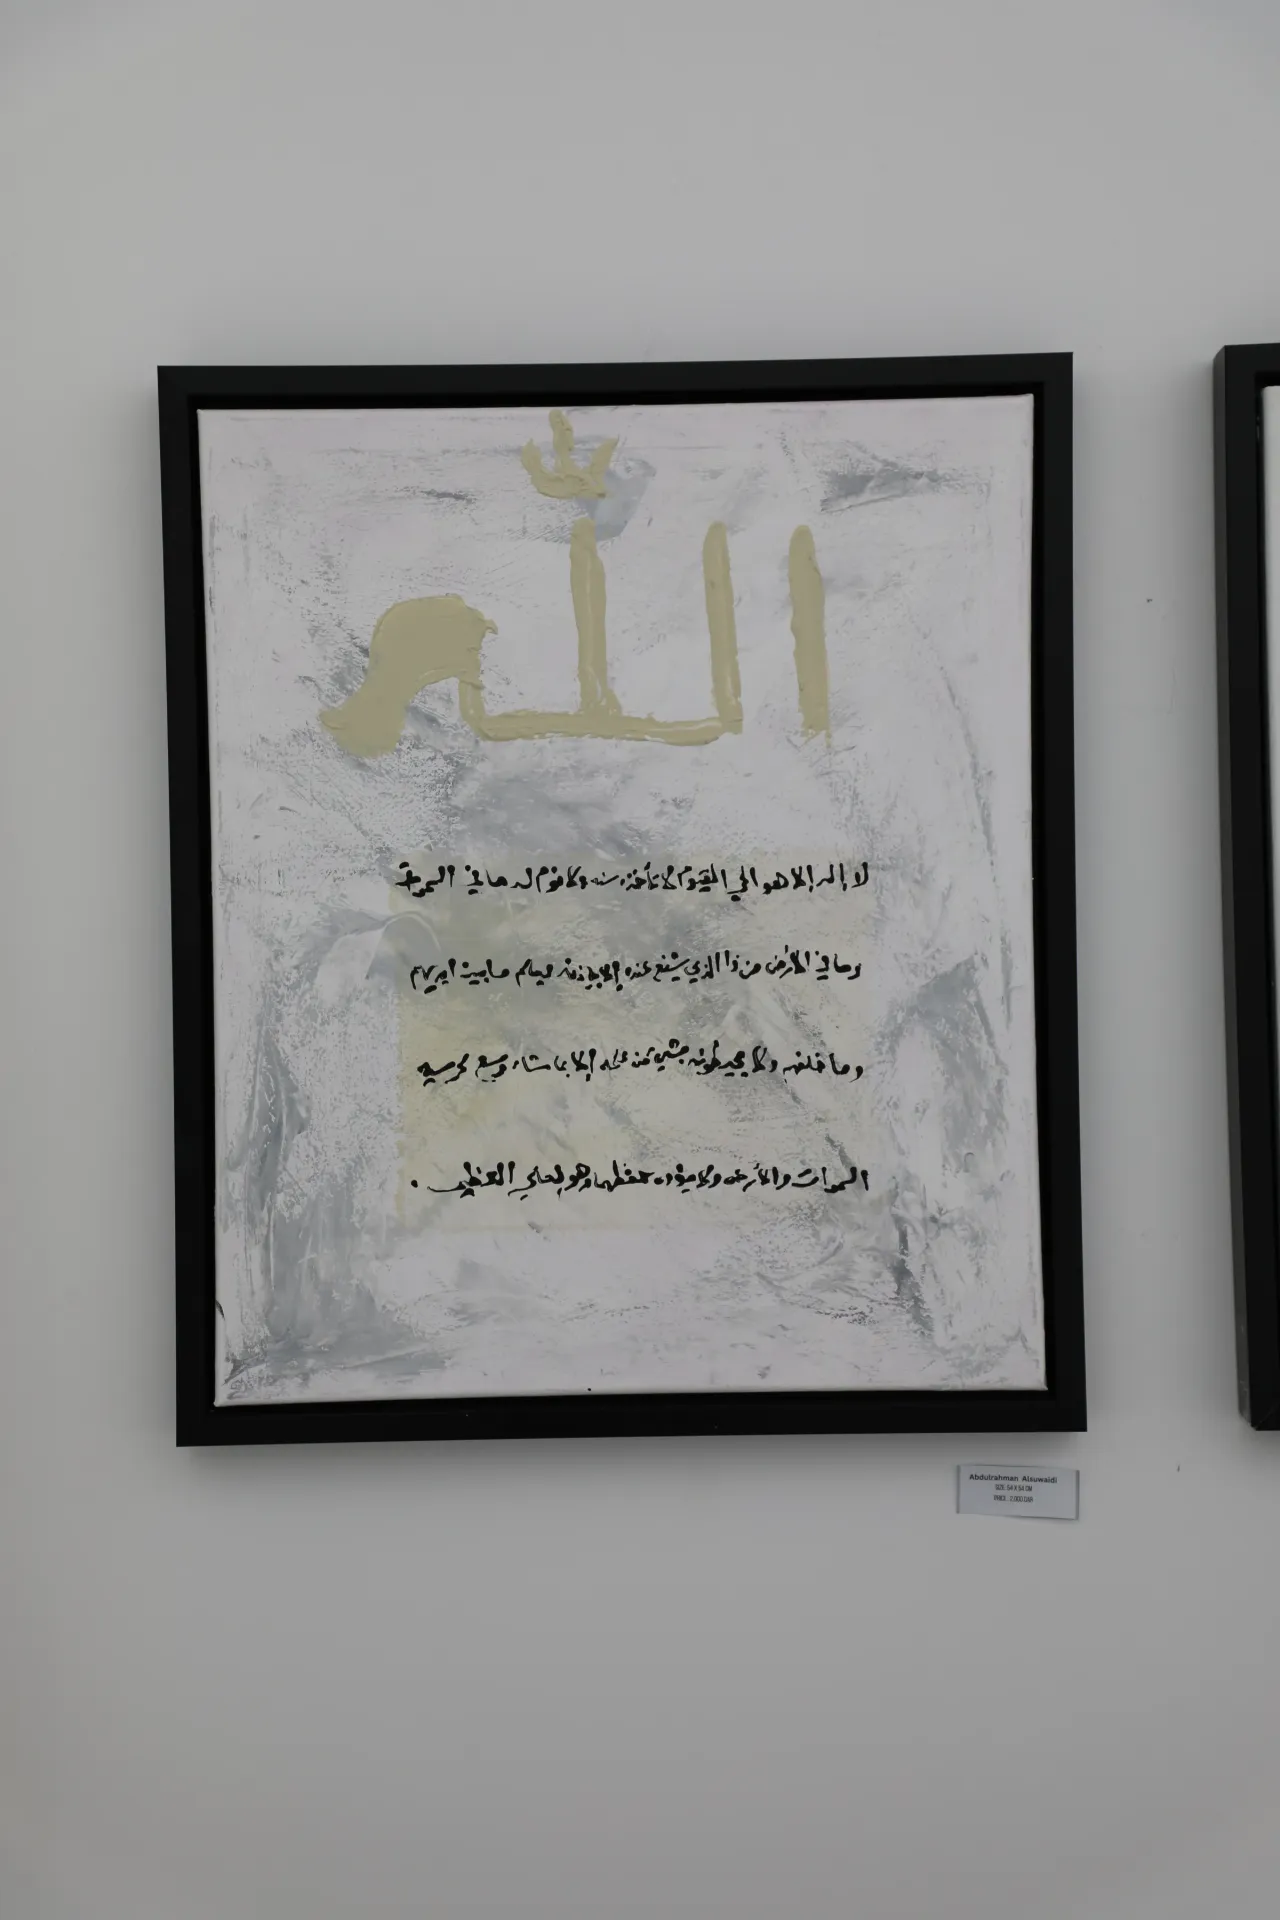 الله
لا إله إلا هو الحي القيوم لا تأخذه سنه ولا نوم له ما في السموات
وما في الأرض من ذا الذي يشفع عنده إلا بإذنه يعلم ما بين ايديهم
وما خلفهم ولا يحيطون بشيء من علمه إلا بما شاء وسع كرسيه
السموات والأرض ولا يؤده حفظهما وهو العلي العظيم .
Abdulrahman Alsuwaidi
SIZE: 54 X 54 CM
PRICE : 2,000 QAR